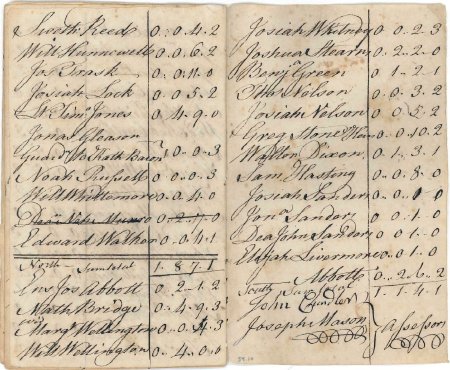 Sweth Reed 0..0..4..2
Will Hunnewell 0..0..6..2
Jos Trask 0..0..11..0
Josiah Lock 0..0..5..2
Wm Jones 0..4..9..0
Jonas Gleason
Guard to Kath Bacon 0..0..3
Noah Russell 0..0..0..3
Will Whittemore 0..0..4..0
Edward Walker 0..0..4..1
North 1..8..7..1
Ens Jos Abbott 0..2..1..2
Nath Bridge 0..4..9..3
Marg Wellington 0..0..4..3
Will Wellington 0..4..0..0
Josiah Whitney 0..0..2..3
Joshua Stearn 0..2..2..0
Benja Green 0..1..2..1
Tho Nelson 0..0..3..2
Josiah Nelson 0..0..5..2
Greg Stone 0..0..10..2
Walton Dixon 0..1..3..1
Sam Hasting 0..0..8..0
Josiah Sanders 0..0..1..0
Jona Sanders 0..0..1..0
Dea John Sanders 0..0..1..0
Elijah Livermore 0..0..1..0
Abbott 0..2..6..2
South 1..1..4..1
John
Joseph Mason
Assessors